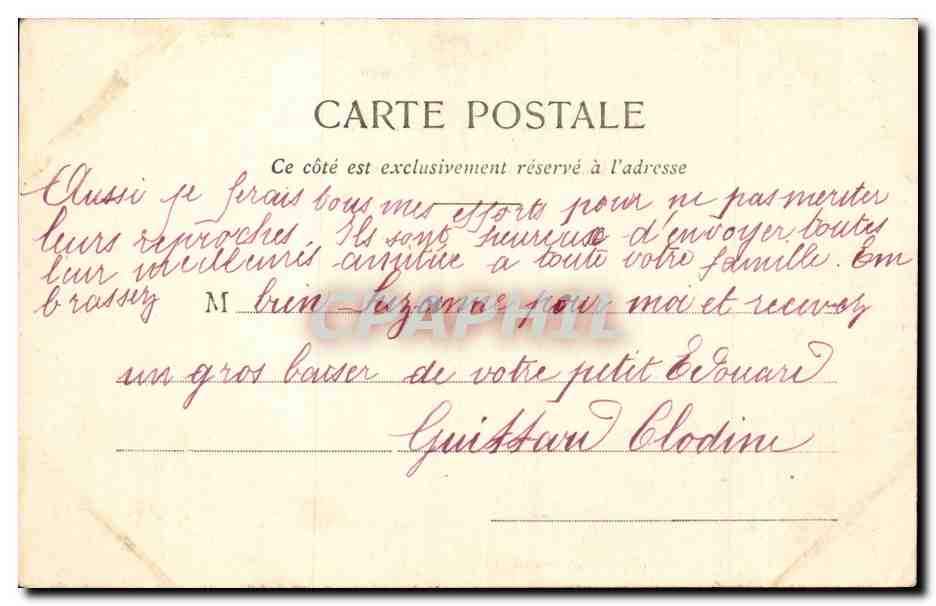 CARTE POSTALE
Ce côté est exclusivement réservé à l'adresse
Aussi je ferais tous mes efforts pour ne pas meriter
leurs reproches. Ils sont heureux d'envoyer toutes
leur meilleures amitiée a toute votre famille. Em
brassez M bien Suzanne pour moi et recevez
CPAPHIL
un gros baiser de votre petit Edouard
Guittard Clodine